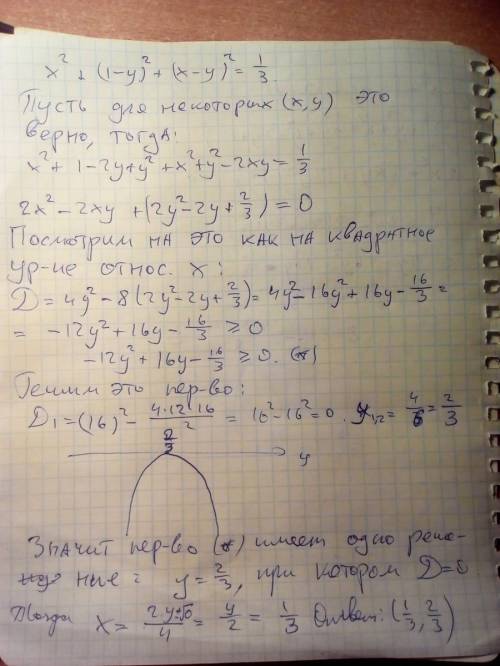 x² + (1-y)² + (x-y)² = 1/3.
Пусть для некоторых (x,y) это
верно, тогда:
x² + 1-2y+y² + x²+y²-2xy = 1/3
2x² - 2xy + (2y²-2y+2/3) = 0
Посмотрим на это как на квадратное
ур-ие относ. x:
D = 4y² - 8(2y²-2y+2/3) = 4y²-16y²+16y-16/3 =
= -12y²+16y-16/3 ≥ 0
-12y²+16y-16/3 ≥ 0. (*)
Решим это нер-во:
D₁ = (16)² - 4·12·16/2 = 16²-16² = 0. y₁,₂ = 4/6 = 2/3
2/3
y
Значит нер-во (*) имеет одно реше-
ние: y = 2/3, при котором D=0
Тогда x = (2y±√0)/4 = y/2 = 1/3 Ответ: (1/3, 2/3)